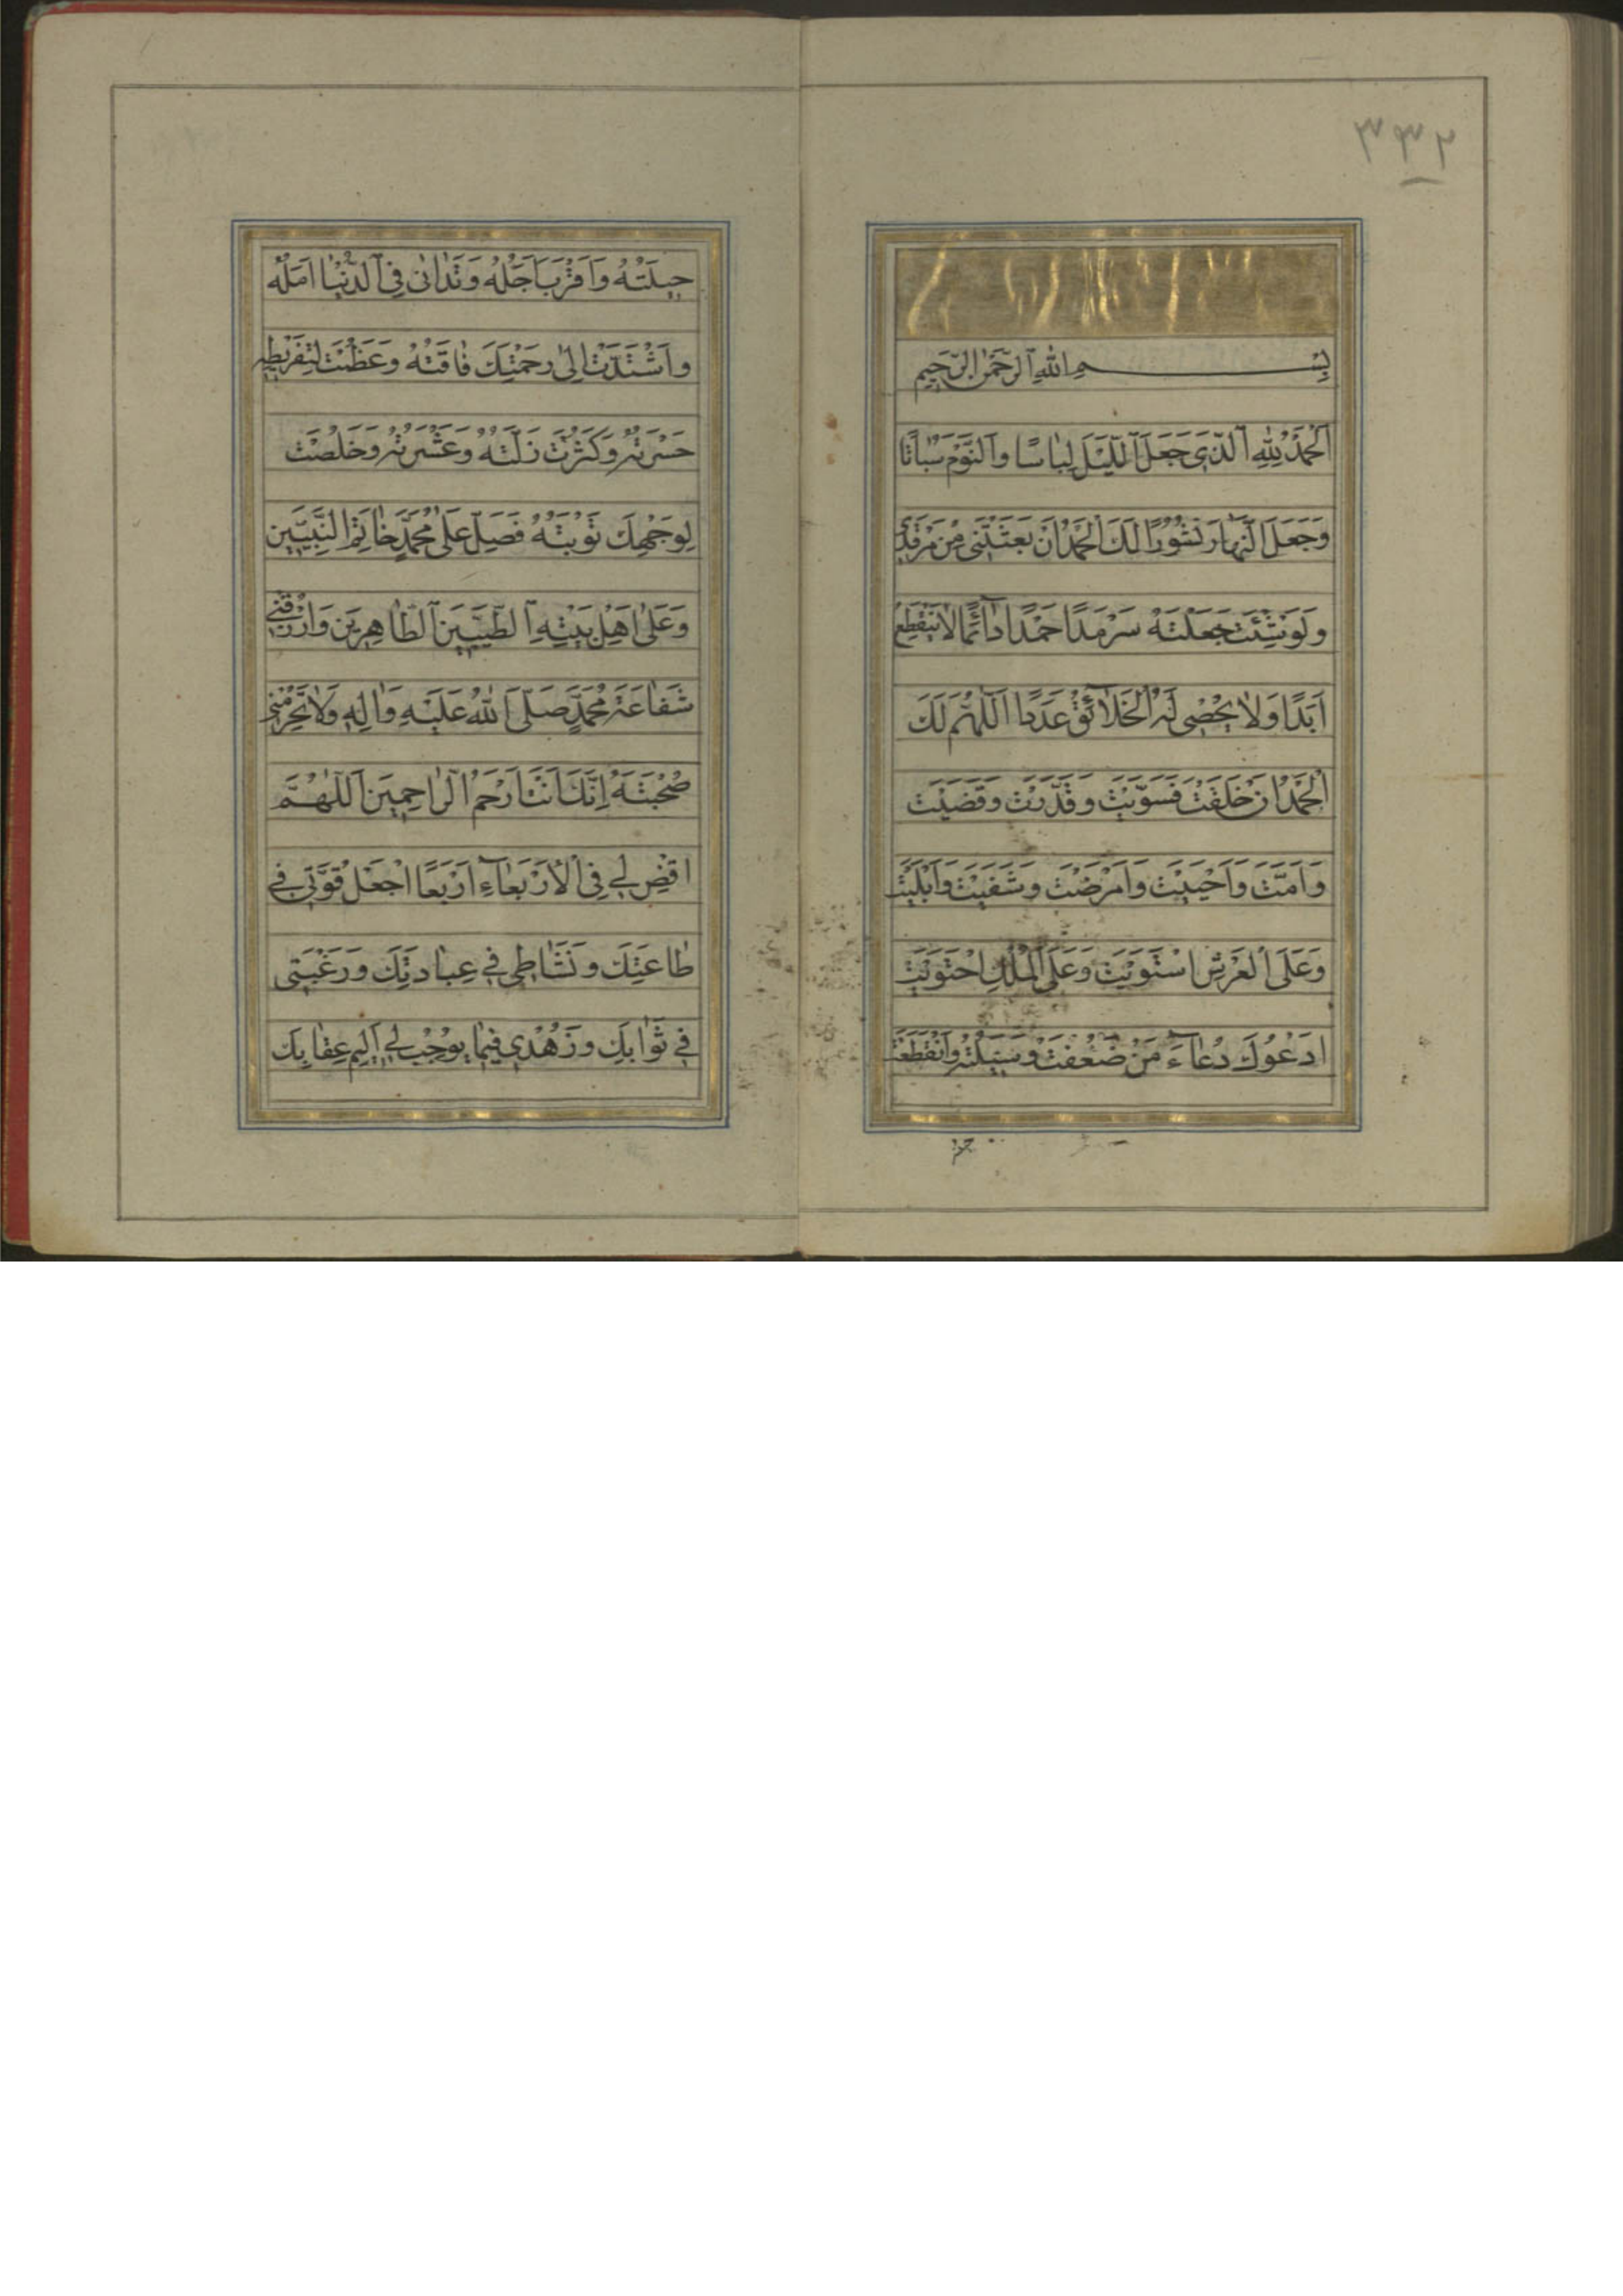 ٣٣٢
بِسْمِ اللهِ الرَّحْمٰنِ الرَّحِيمِ
اَلْحَمْدُ لِلّٰهِ الَّذِي جَعَلَ اللَّيْلَ لِبَاسًا وَالنَّوْمَ سُبَاتًا
وَجَعَلَ النَّهَارَ نُشُورًا لَكَ الْحَمْدُ اَنْ بَعَثْتَنِي مِنْ مَرْقَدِي
وَلَوْ شِئْتَ جَعَلْتَهُ سَرْمَدًا حَمْدًا دَائِمًا لَا يَنْقَطِعُ
اَبَدًا وَلَا يُحْصِي لَهُ الْخَلَائِقُ عَدَدًا اَللّٰهُمَّ لَكَ
الْحَمْدُ اَنْ خَلَقْتَ فَسَوَّيْتَ وَقَدَّرْتَ وَقَضَيْتَ
وَاَمَتَّ وَاَحْيَيْتَ وَاَمْرَضْتَ وَشَفَيْتَ وَاَبْلَيْتَ
وَعَلَى الْعَرْشِ اسْتَوَيْتَ وَعَلَى الْمُلْكِ احْتَوَيْتَ
اَدْعُوكَ دُعَاءَ مَنْ ضَعُفَتْ وَسِيلَتُهُ وَانْقَطَعَتْ
حِيلَتُهُ وَاقْتَرَبَ اَجَلُهُ وَتَدَانٰى فِي الدُّنْيَا اَمَلُهُ
وَاشْتَدَّتْ اِلٰى رَحْمَتِكَ فَاقَتُهُ وَعَظُمَتْ لِتَفْرِيطِهِ
حَسْرَتُهُ وَكَثُرَتْ زَلَّتُهُ وَعَثْرَتُهُ وَخَلُصَتْ
لِوَجْهِكَ تَوْبَتُهُ فَصَلِّ عَلٰى مُحَمَّدٍ خَاتِمِ النَّبِيِّينَ
وَعَلٰى اَهْلِ بَيْتِهِ الطَّيِّبِينَ الطَّاهِرِينَ وَارْزُقْنِي
شَفَاعَةَ مُحَمَّدٍ صَلَّى اللهُ عَلَيْهِ وَاٰلِهِ وَلَا تَحْرِمْنِي
صُحْبَتَهُ اِنَّكَ اَنْتَ اَرْحَمُ الرَّاحِمِينَ اَللّٰهُمَّ
اقْضِ لِي فِي الْاَرْبَعَاءِ اَرْبَعًا اجْعَلْ قُوَّتِي فِي
طَاعَتِكَ وَنَشَاطِي فِي عِبَادَتِكَ وَرَغْبَتِي
فِي ثَوَابِكَ وَزُهْدِي فِيمَا يُوجِبُ لِي اَلِيمَ عِقَابِكَ